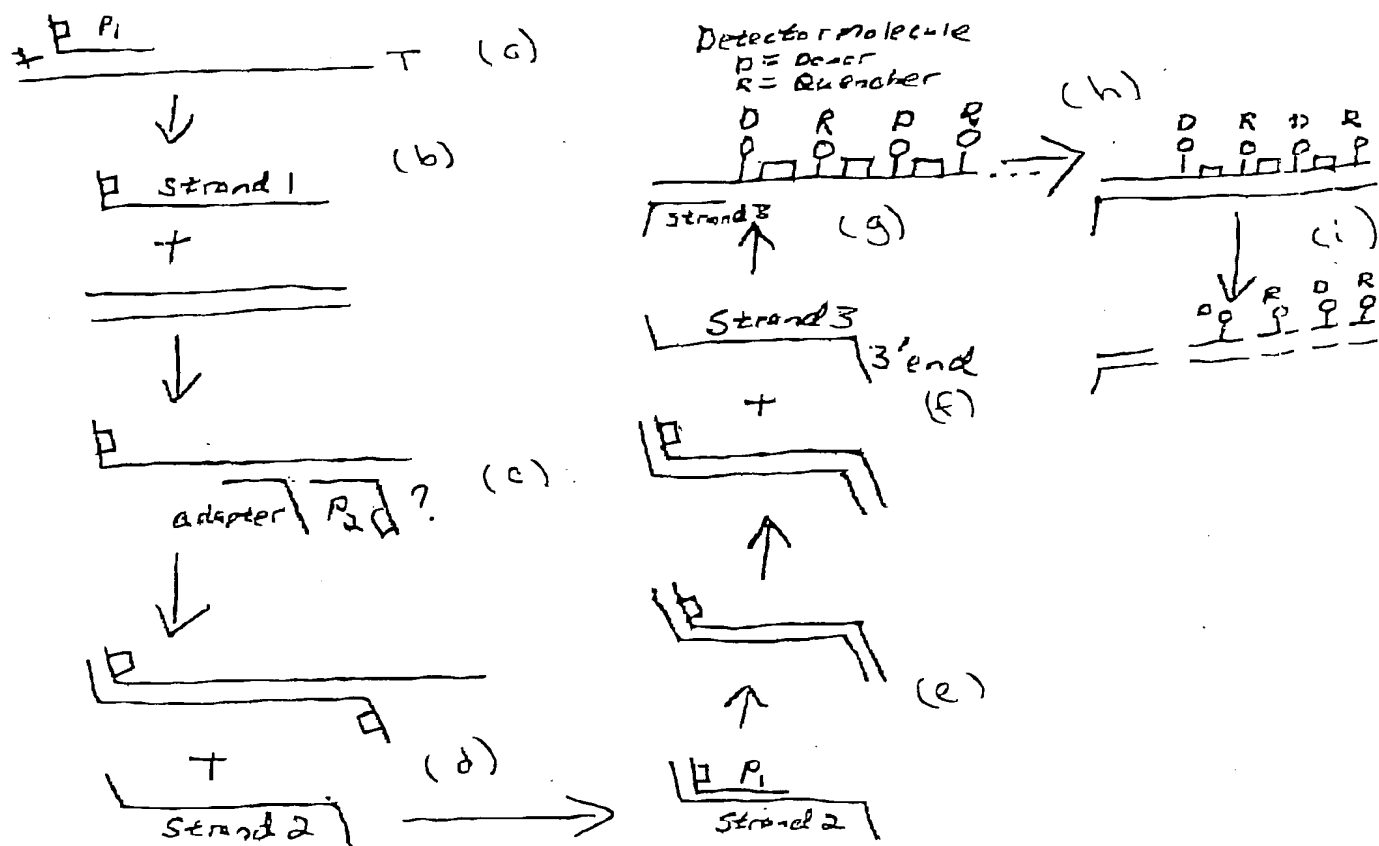 P1
+
T (a)
(b)
Strand 1
+
(c)
adapter P2 ?
+
(d)
Strand 2
Detector molecule
D = Donor
R = Quencher
D R D R
(h)
D R D R
Strand 3
(g)
(i)
D R D R
Strand 3
3' end
+
(f)
(e)
P1
Strand 2